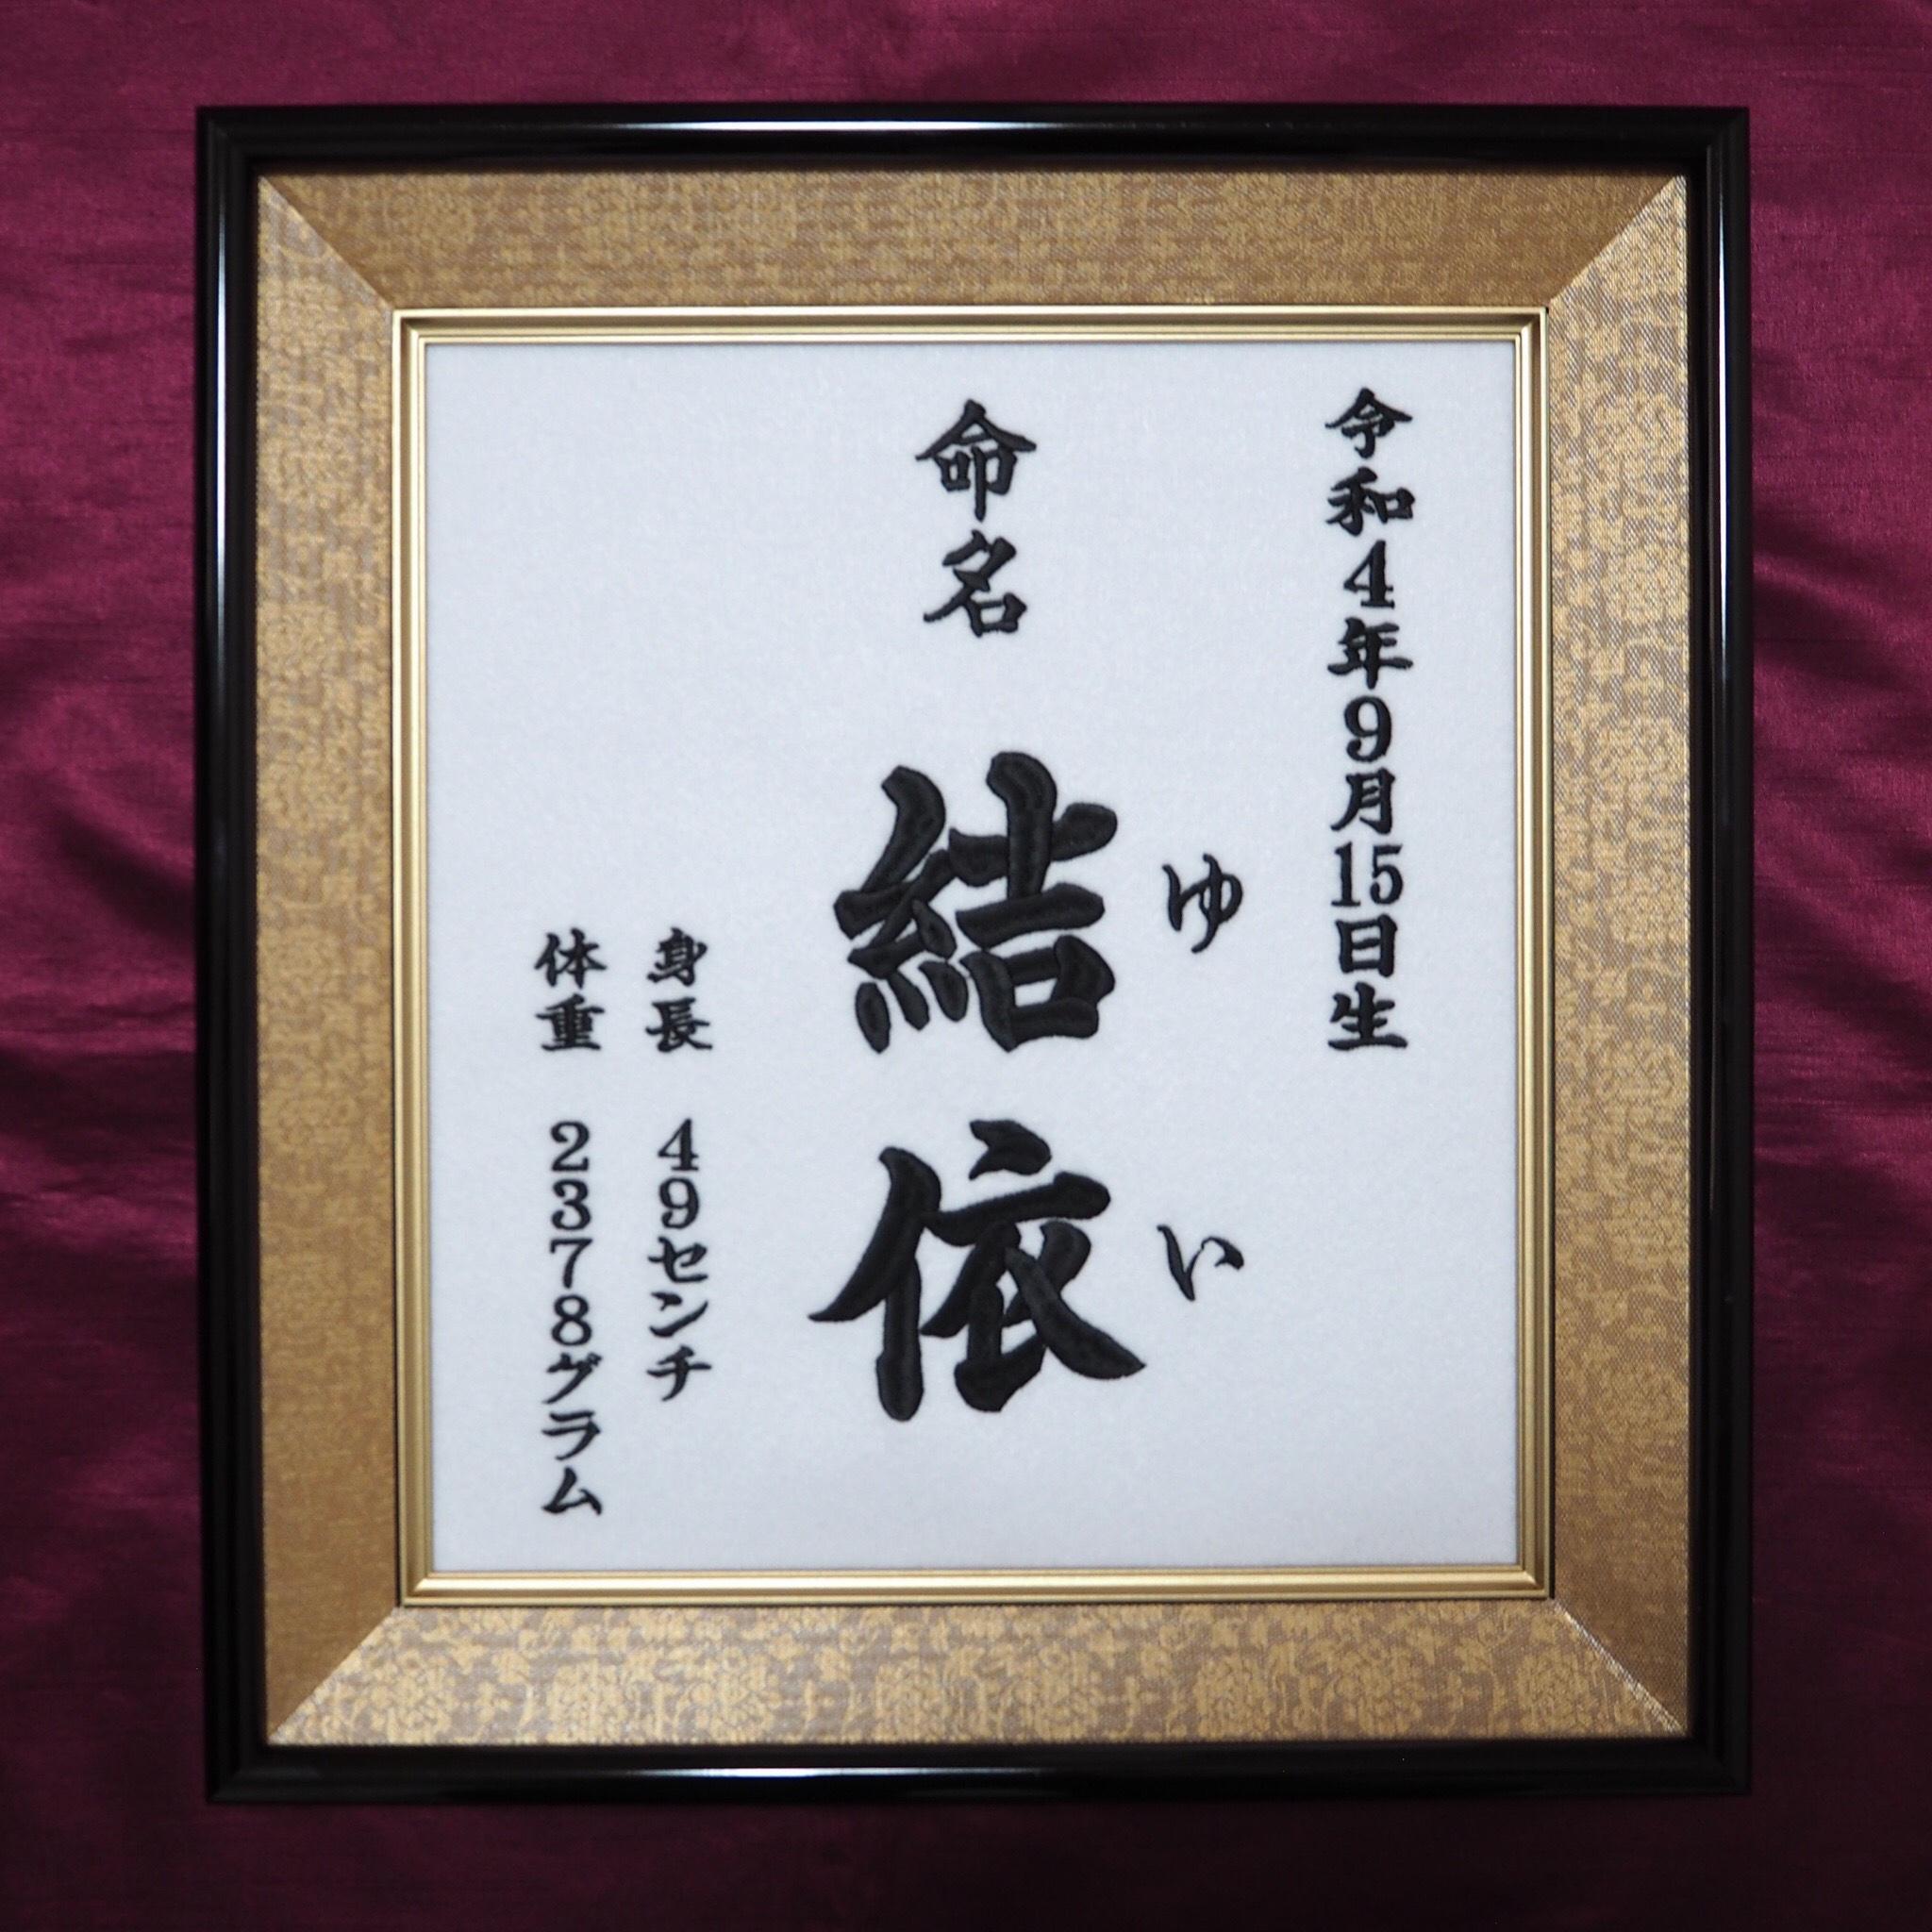 令和4年9月15日生
ゆい
命名 結依
身長 49センチ
体重 2378グラム